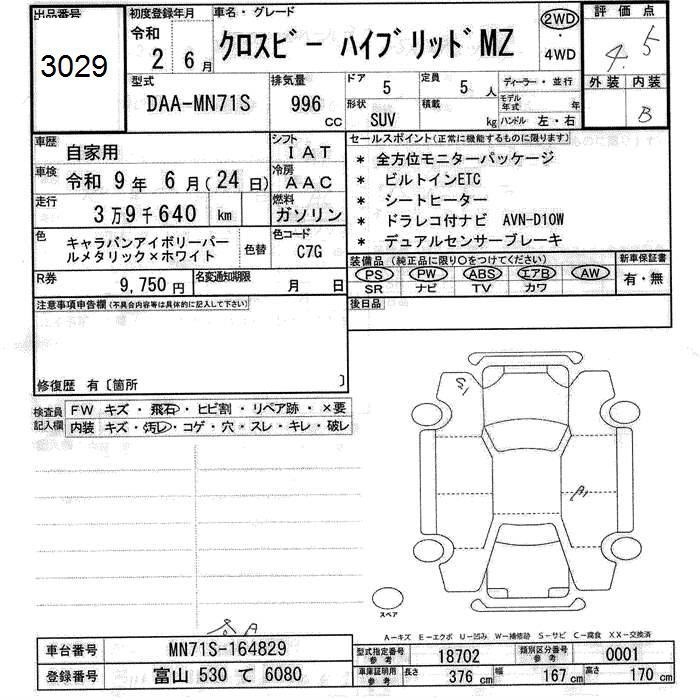 出品番号
3029
初度登録年月
令和
2 6月
車名・グレード
クロスビー ハイブリッドMZ
2WD
・
4WD
評価点
4.5
外装 内装
B
型式
DAA-MN71S
排気量
996
cc
ドア
5
定員
5 人
形状
SUV
積載
kg
ディーラー・並行
モデル年式 年
ハンドル 左・右
車歴
自家用
車検
令和 9年 6月(24日)
走行
3万9千640 km
シフト
IAT
冷房
AAC
燃料
ガソリン
色
キャラバンアイボリーパー
ルメタリック×ホワイト
色替
色コード
C7G
R券
9,750円
名変通知期限
月 日
セールスポイント(正常に機能するものに限ります)
* 全方位モニターパッケージ
* ビルトインETC
* シートヒーター
* ドラレコ付ナビ AVN-D10W
* デュアルセンサーブレーキ
装備品(純正品に限り○をつけてください)
PS PW ABS エアB AW
SR ナビ TV カワ
新車保証書
有・無
後日品
注意事項申告欄(不具合内容等は具体的に記入して下さい)
修復歴 有〔箇所 〕
検査員
記入欄
FW キズ・飛石・ヒビ割・リペア跡・×要
内装 キズ・汚レ・コゲ・穴・スレ・キレ・破レ
S1
A1
スペア
A-キズ E-エクボ U-凹み W-補修跡 S-サビ C-腐食 XX-交換済
車台番号
MN71S-164829
登録番号
富山 530 て 6080
型式指定番号
参考
18702
類別区分番号
参考
0001
車庫証明用
参考
長さ 376 cm 幅 167 cm 高さ 170 cm